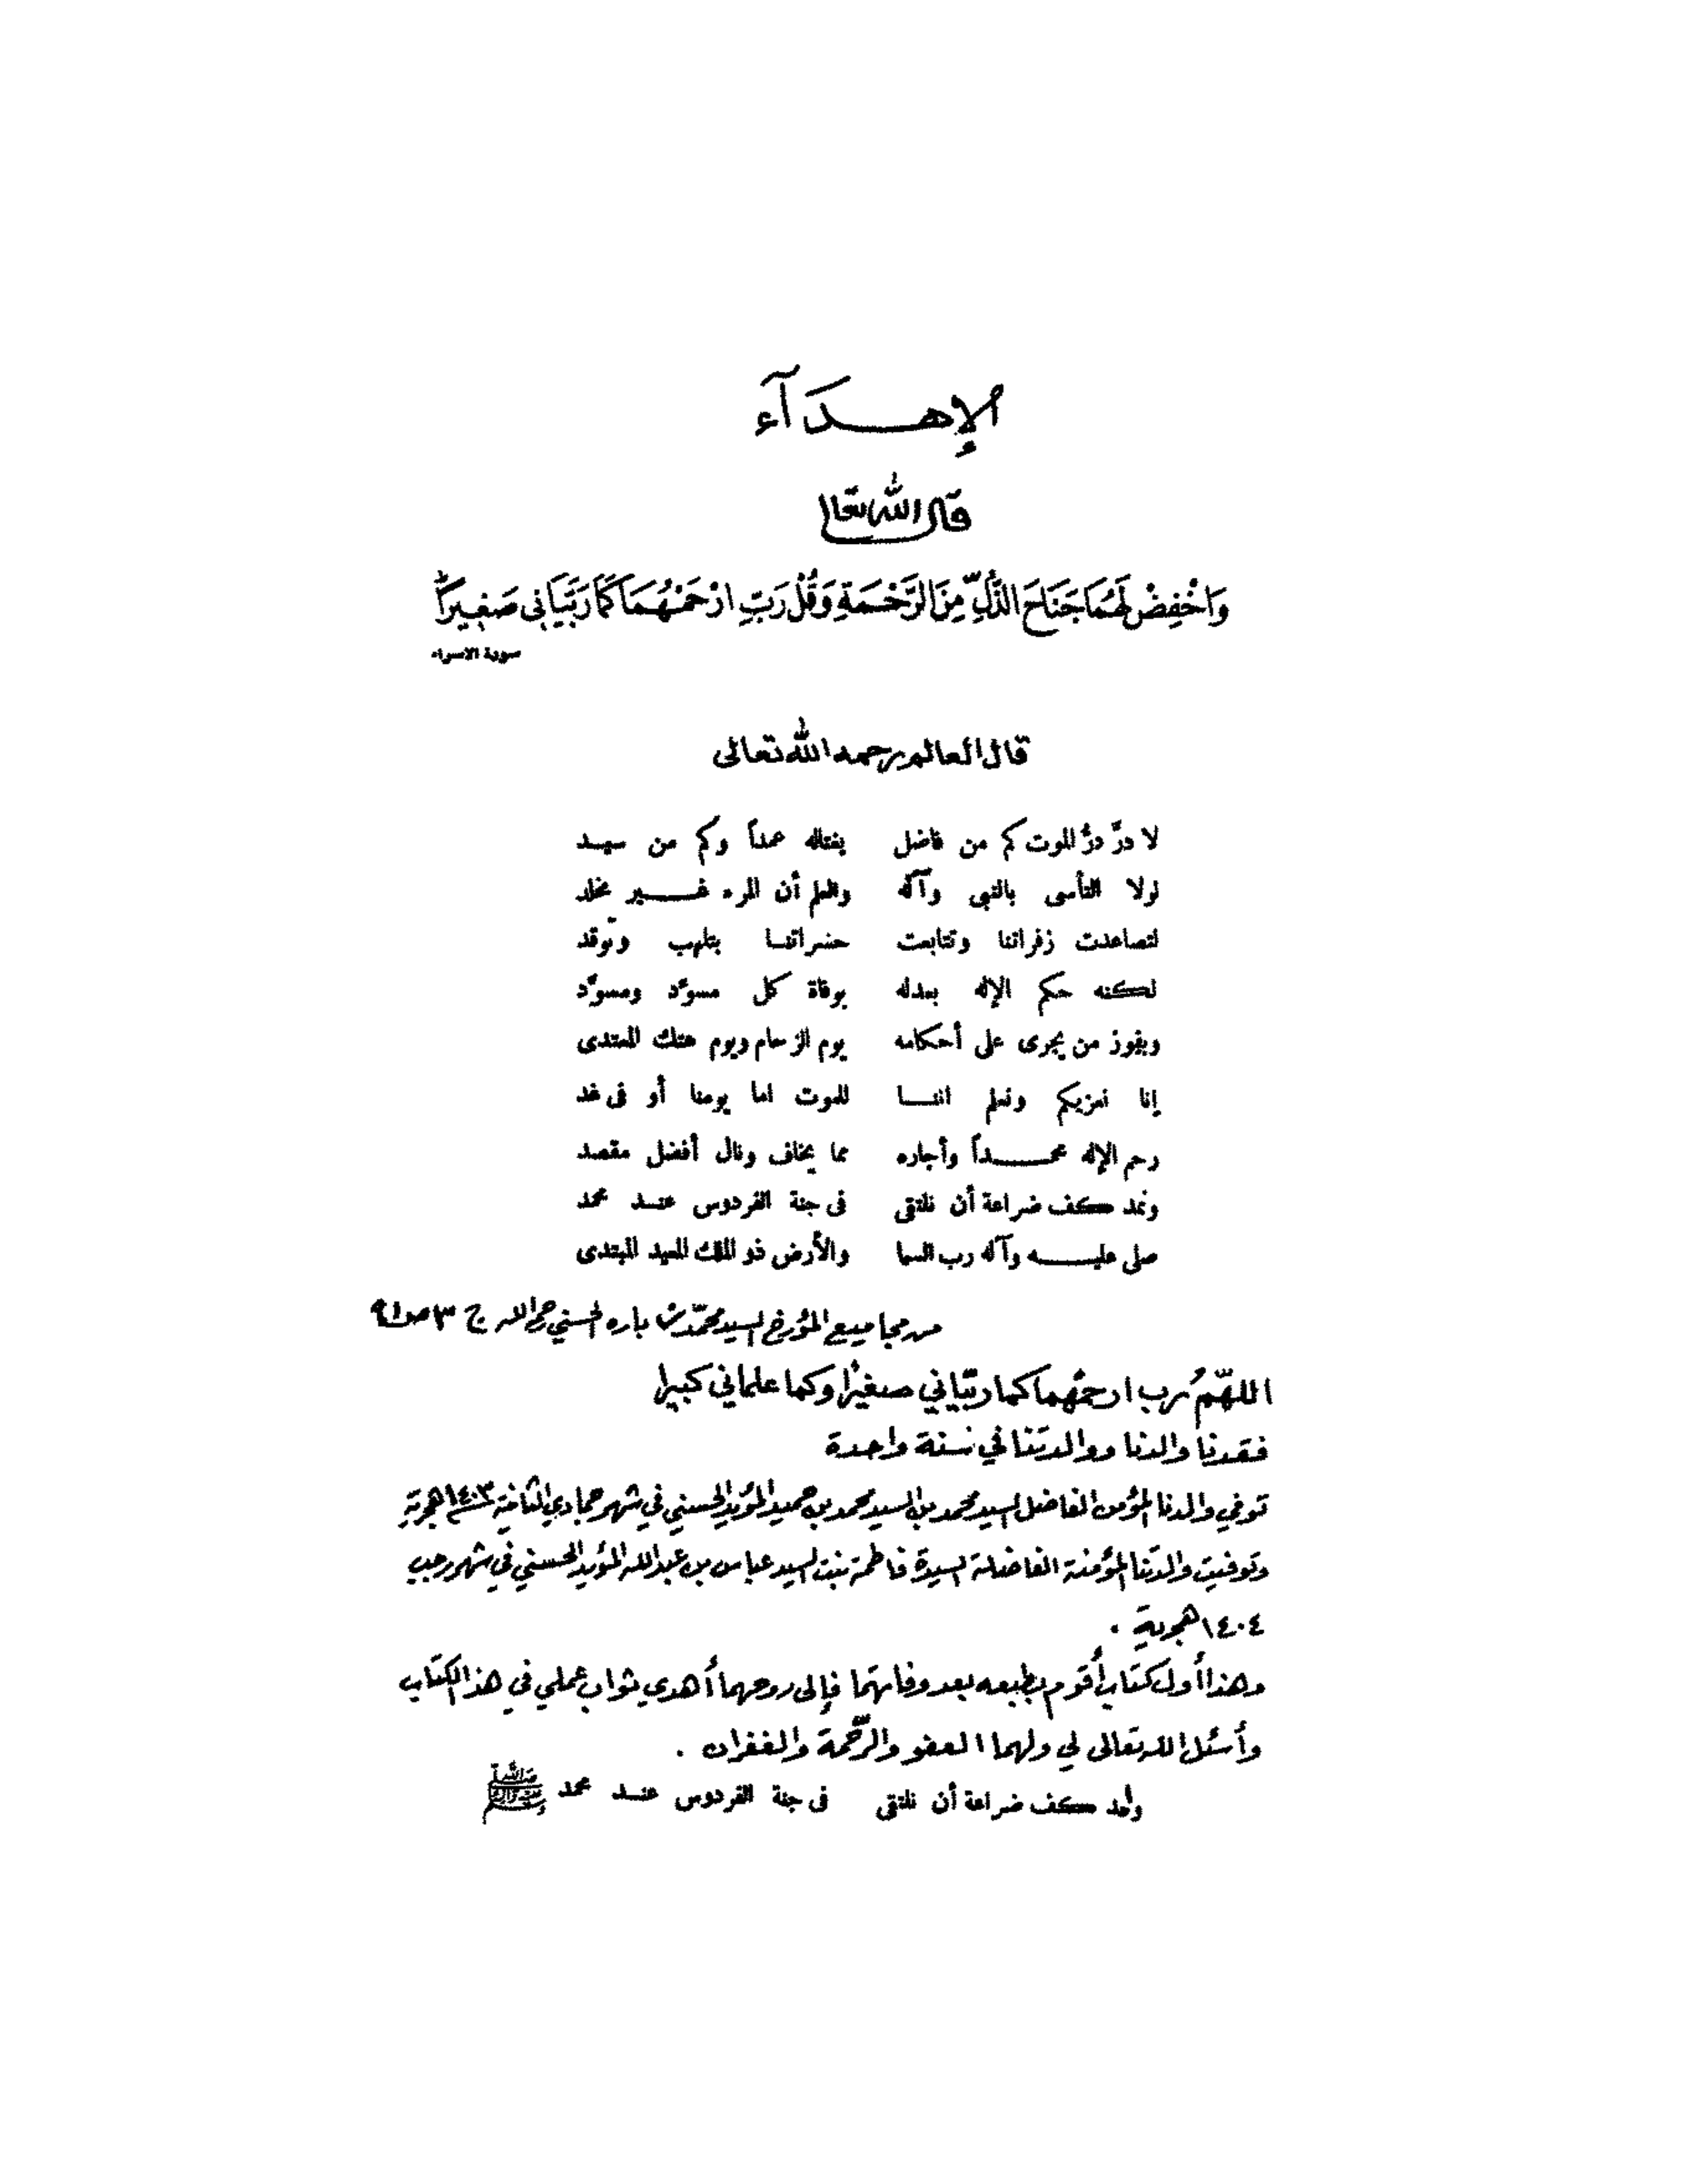 الإهـــدآء
قال الله تعالى
وَاخْفِضْ لَهُمَا جَنَاحَ الذُّلِّ مِنَ الرَّحْمَةِ وَقُلْ رَبِّ ارْحَمْهُمَا كَمَا رَبَّيَانِي صَغِيرًا
سورة الاسراء
قال العالم رحمه الله تعالى
لا درَّ درُّ الموت كم من فاضل يغتاله عمداً وكم من سيـد
لولا التأسى بالنبى وآله والعلم أن المرء غـــير مخلد
لتصاعدت زفراتنا وتتابعت حسراتنـا بتلهب وتوقد
لكنه حكم الإله بعدله بوفاة كل مسوَّد ومسوِّد
ويفوز من يجرى على أحكامه يوم الزحام ويوم هتك المعتدى
إنا نعزيكم ونعلم اننـــا للموت اما يومنا أو فى غد
رحم الإله محمـــداً وأجاره مما يخاف ونال أفضل مقصد
ونمد كف ضراعة أن نلتقى فى جنة الفردوس عنـد محمد
صلى عليـــه وآله رب السما والأرض ذو الملك المعيد المبتدى
من مجاميع المؤرخ السيد محمد بن الحسني رحمه الله ج ٣
اللهمَّ رب ارحمهما كما ربّياني صغيرًا وكما علماني كبيرا
فقدنا والدنا ووالدتنا في سنة واحدة
توفي والدنا المؤمن الفاضل السيد محمد بن السيد محمد بن حميد المؤيد الحسني في شهر جمادي الثانية ١٤٠٣ هجرية
وتوفيت والدتنا المؤمنة الفاضلة السيدة فاطمة بنت السيد عباس بن عبدالله المؤيد الحسني في شهر رجب
١٤٠٤ هجرية .
وهذا أول كتاب أقوم بطبعه بعد وفاتهما فإلى روحهما أهدي ثواب عملي في هذا الكتاب
وأسئل الله تعالى لي ولهما العفو والرّحمة والغفران .
ونمد كف ضراعة أن نلتقى فى جنة الفردوس عنـد محمد